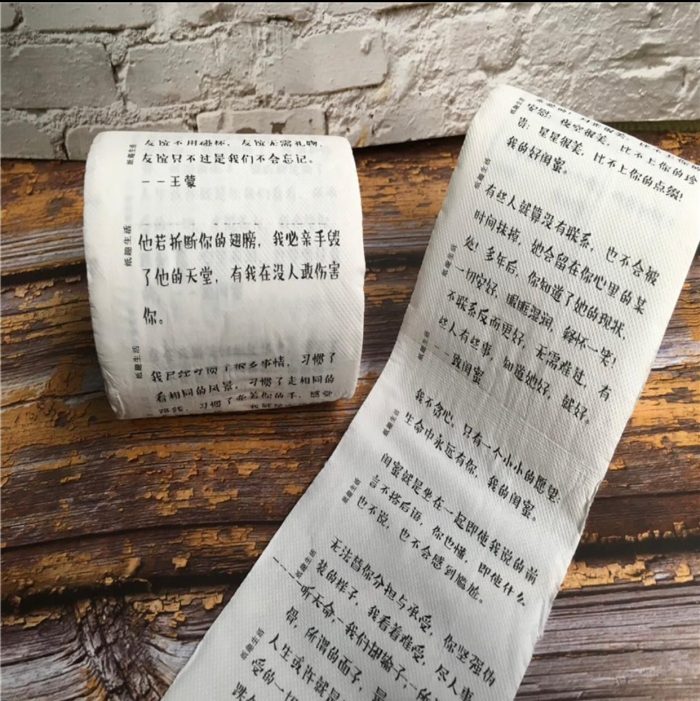 友谊不用碰杯，友谊无需礼物，
友谊只不过是我们不会忘记。
——王蒙
纸趣生活
他若折断你的翅膀，我必亲手毁
了他的天堂，有我在没人敢伤害
你。
纸趣生活
我已经习惯了很多事情，习惯了
看相同的风景，习惯了走相同的
路线，习惯了牵着你的手，感觉
纸趣生活
安慰：夜空很美，比不上你的珍
贵；星星很美，比不上你的点缀！
我的好闺蜜。
有些人就算没有联系，也不会被
时间抹掉，她会留在你心里的某
处！多年后，你知道了她的现状，
一切安好，眼眶湿润，释怀一笑！
不联系反而更好，无需难过，有
些人有些事，知道她好，就好。
——致闺蜜
纸趣生活
我不贪心，只有一个小小的愿望：
生命中永远有你，我的闺蜜。
纸趣生活
闺蜜就是坐在一起即他我说的前
言不搭后语，你也懂，即他什么
也不说，也不会感到尴尬。
纸趣生活
无法替你分担与承受，你坚强伪
装的样子，我看着难受，尽人事
听天命
纸趣生活
骨，所谓的面子，是
人生或许就是
爱的一切